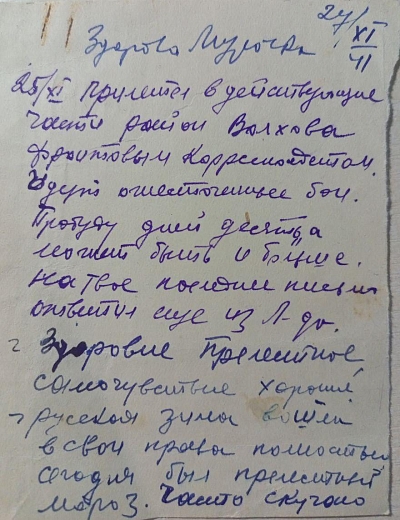 27/XI 41
Здорово Мурочка
25/XI прилетел в действующие
части район Волхова
фронтовым корреспондентом.
Идут ожесточенные бои.
Пробуду дней десять, а
может быть и больше.
На твое последнее письмо
ответил еще из Л-да.
Здоровье прелестное,
самочувствие хорошее,
русская зима вошла
в свои права полностью
сегодня был прелестный
мороз. Часто скучаю